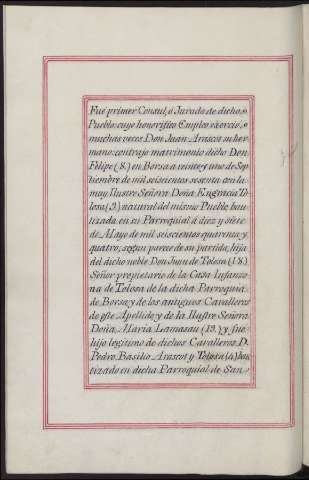 Fué primer Consul, ó Jurado de dicho
Pueblo: cuyo honorifico Empleo exerció,
muchas veces Don Juan Arascot su her-
mano: contrajo matrimonio dicho Don
Felipe (8.) en Borsa a veinte y uno de Sep-
tiembre de mil seiscientos sesenta con la
muy Ilustre Señora Doña Engracia To-
losa (9.) natural del mismo Pueblo, bau-
tizada en su Parroquial á diez y siete
de Mayo de mil seiscientos quarenta y
quatro, segun parece de su partida, hija
del dicho noble Don Juan de Tolosa (18.)
Señor propietario de la Casa Infanzo-
na de Tolosa de la dicha Parroquia
de Borsa, y de los antiguos Cavalleros
de este Apellido, y de la Ilustre Señora
Doña Maria Lamasau (19.) y fue
hijo legitimo de dichos Cavalleros D.
Pedro Basilio Arascot y Tolosa (4.) bau-
tizado en dicha Parroquial de San